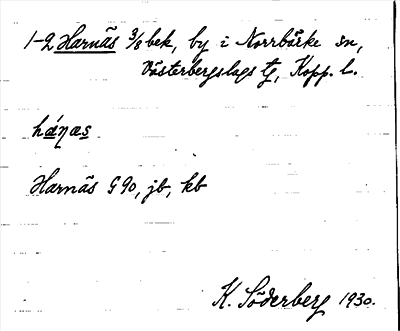 1-2 Harnäs 3/8 bek, by i Norrbärke sn,
Västerbergslags tg, Kopp. l.
háŋæs
Harnäs G 90, jb, kb
K. Söderberg 1930.